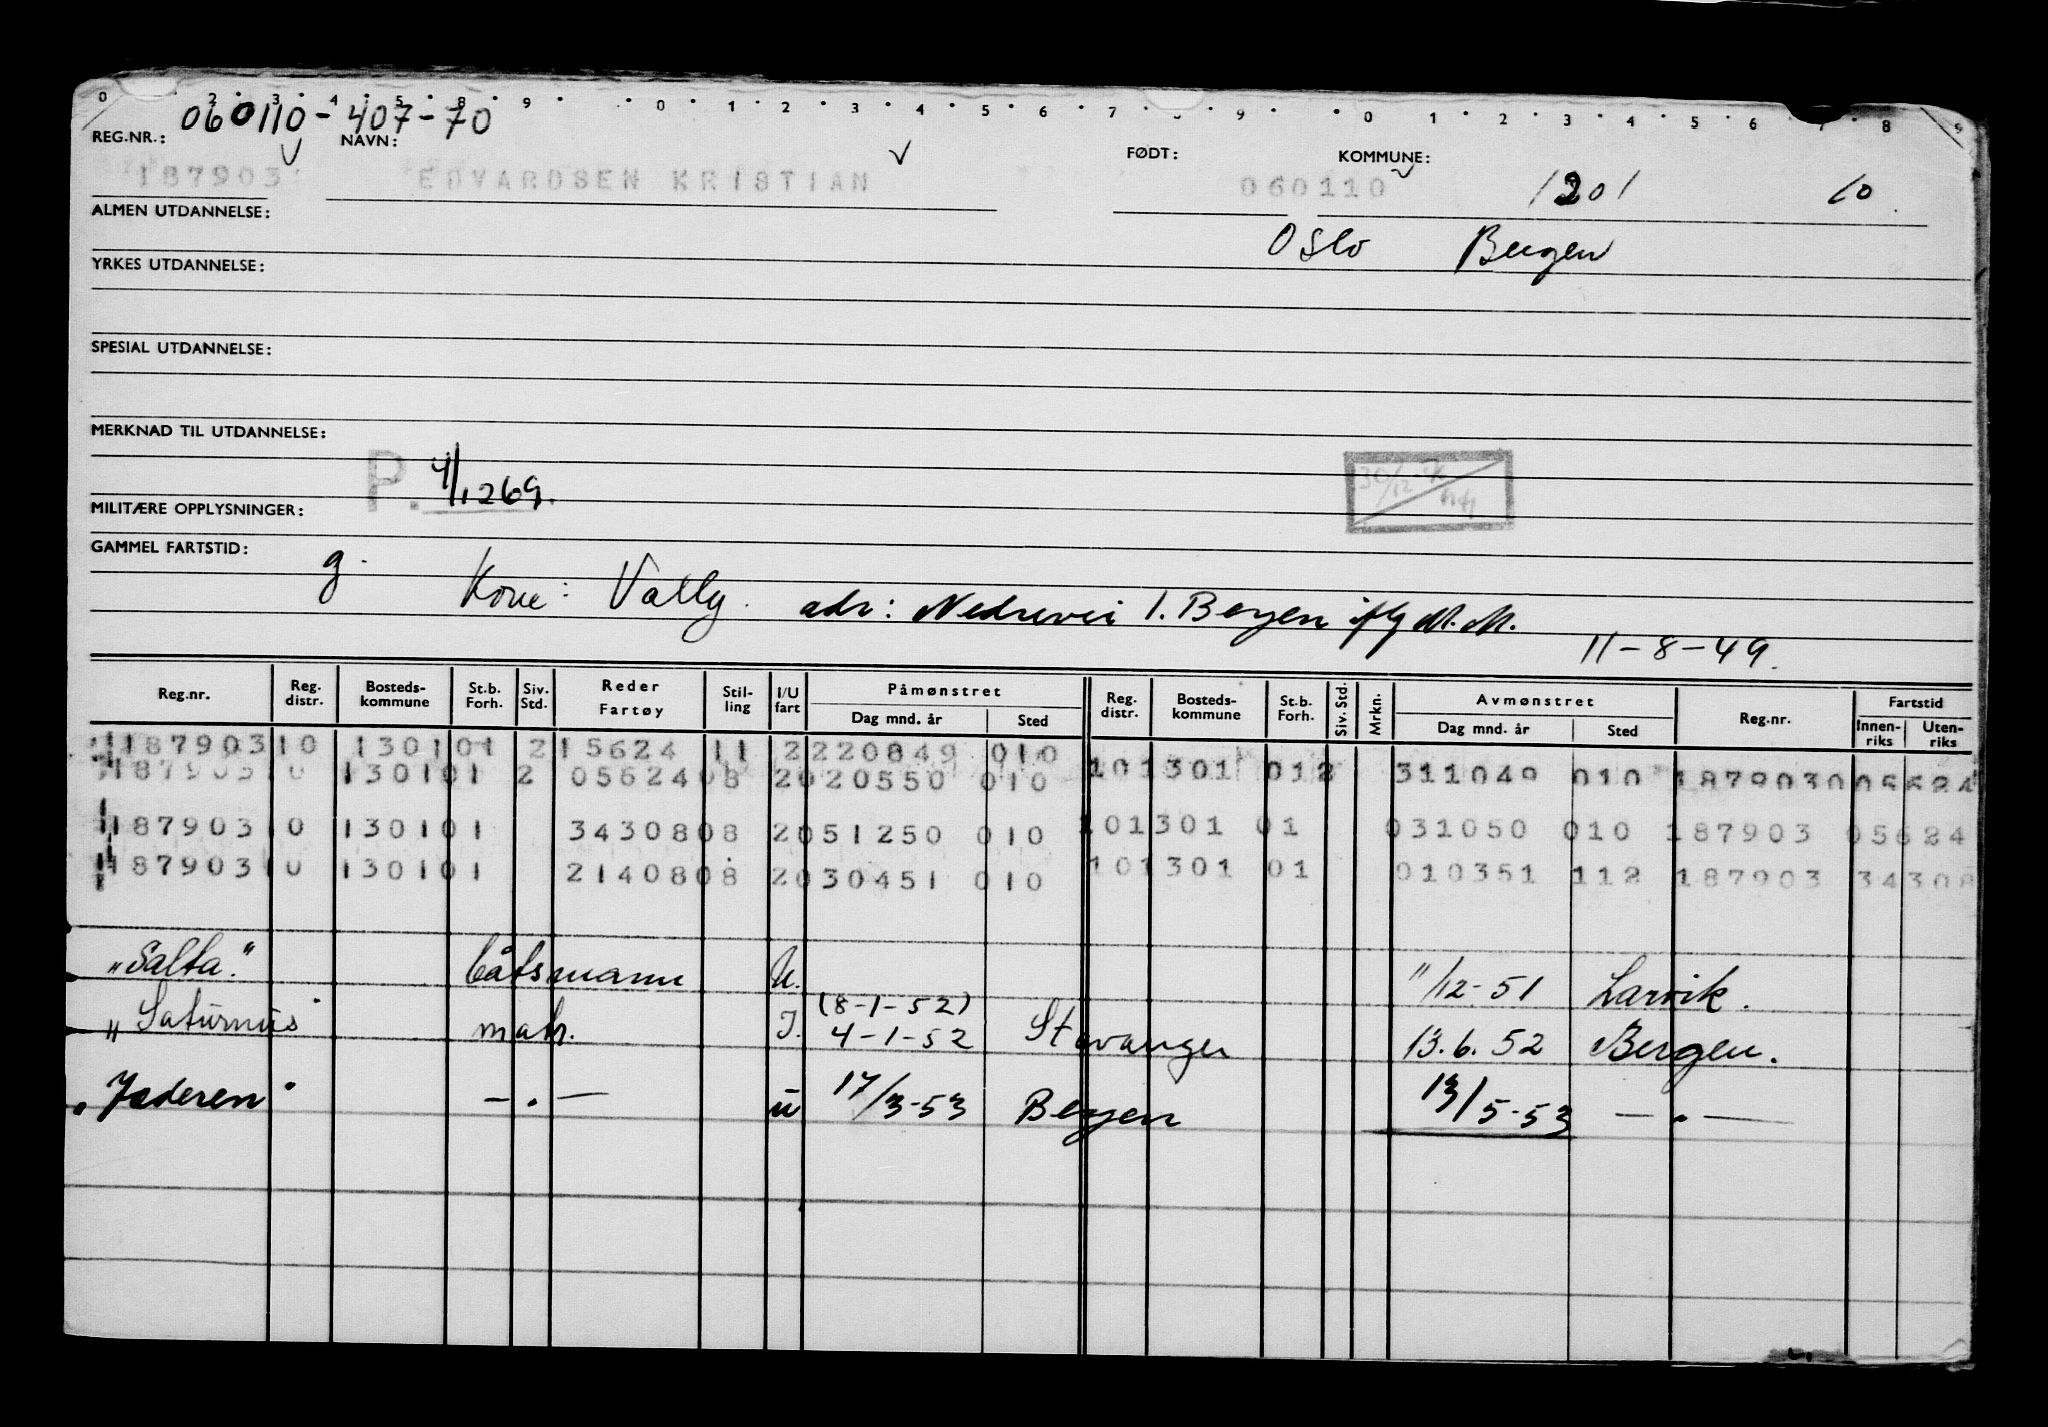 0 2 3 4 5 8 9 0 1 2 3 4 5 6 7 9 0 1 2 3 4 5 6 7 8 9
060110-407-70
REG.NR.: NAVN: FØDT: KOMMUNE:
187903 EDVARDSEN KRISTIAN 060110 1201 10
ALMEN UTDANNELSE:
Oslo Bergen
YRKES UTDANNELSE:
SPESIAL UTDANNELSE:
MERKNAD TIL UTDANNELSE:
P. 4/1269.
MILITÆRE OPPLYSNINGER:
GAMMEL FARTSTID:
g.
Kone: Vally. adr: Nedrevei 1. Bergen iflg M.M.
11-8-49.
Reg.nr. Reg. distr. Bosteds- kommune St.b. Forh. Siv. Std. Reder Fartøy Stil- ling I/U fart Påmønstret Dag mnd. år Sted Reg. distr. Bosteds- kommune St.b. Forh. Siv. Std. Mrkn. Avmønstret Dag mnd. år Sted Reg.nr. Fartstid Innen- riks Uten- riks
187903 10 1301 01 2 15624 11 2 220849 010
187903 10 1301 01 2 05624 08 2 020550 010 10 1301 012 311049 010 187903 005624
187903 10 1301 01 34308 08 2 051250 010 10 1301 01 031050 010 187903 05624
187903 10 1301 01 21408 08 2 030451 010 10 1301 01 010351 112 187903 34308
"Salta." båtsmann U. 11/12-51 Larvik.
"Saturnus" matr. I. (8-1-52) 4-1-52 Stavanger 13.6.52 Bergen.
"Jæderen" — . — u 17/3-53 Bergen 13/5-53 — . —